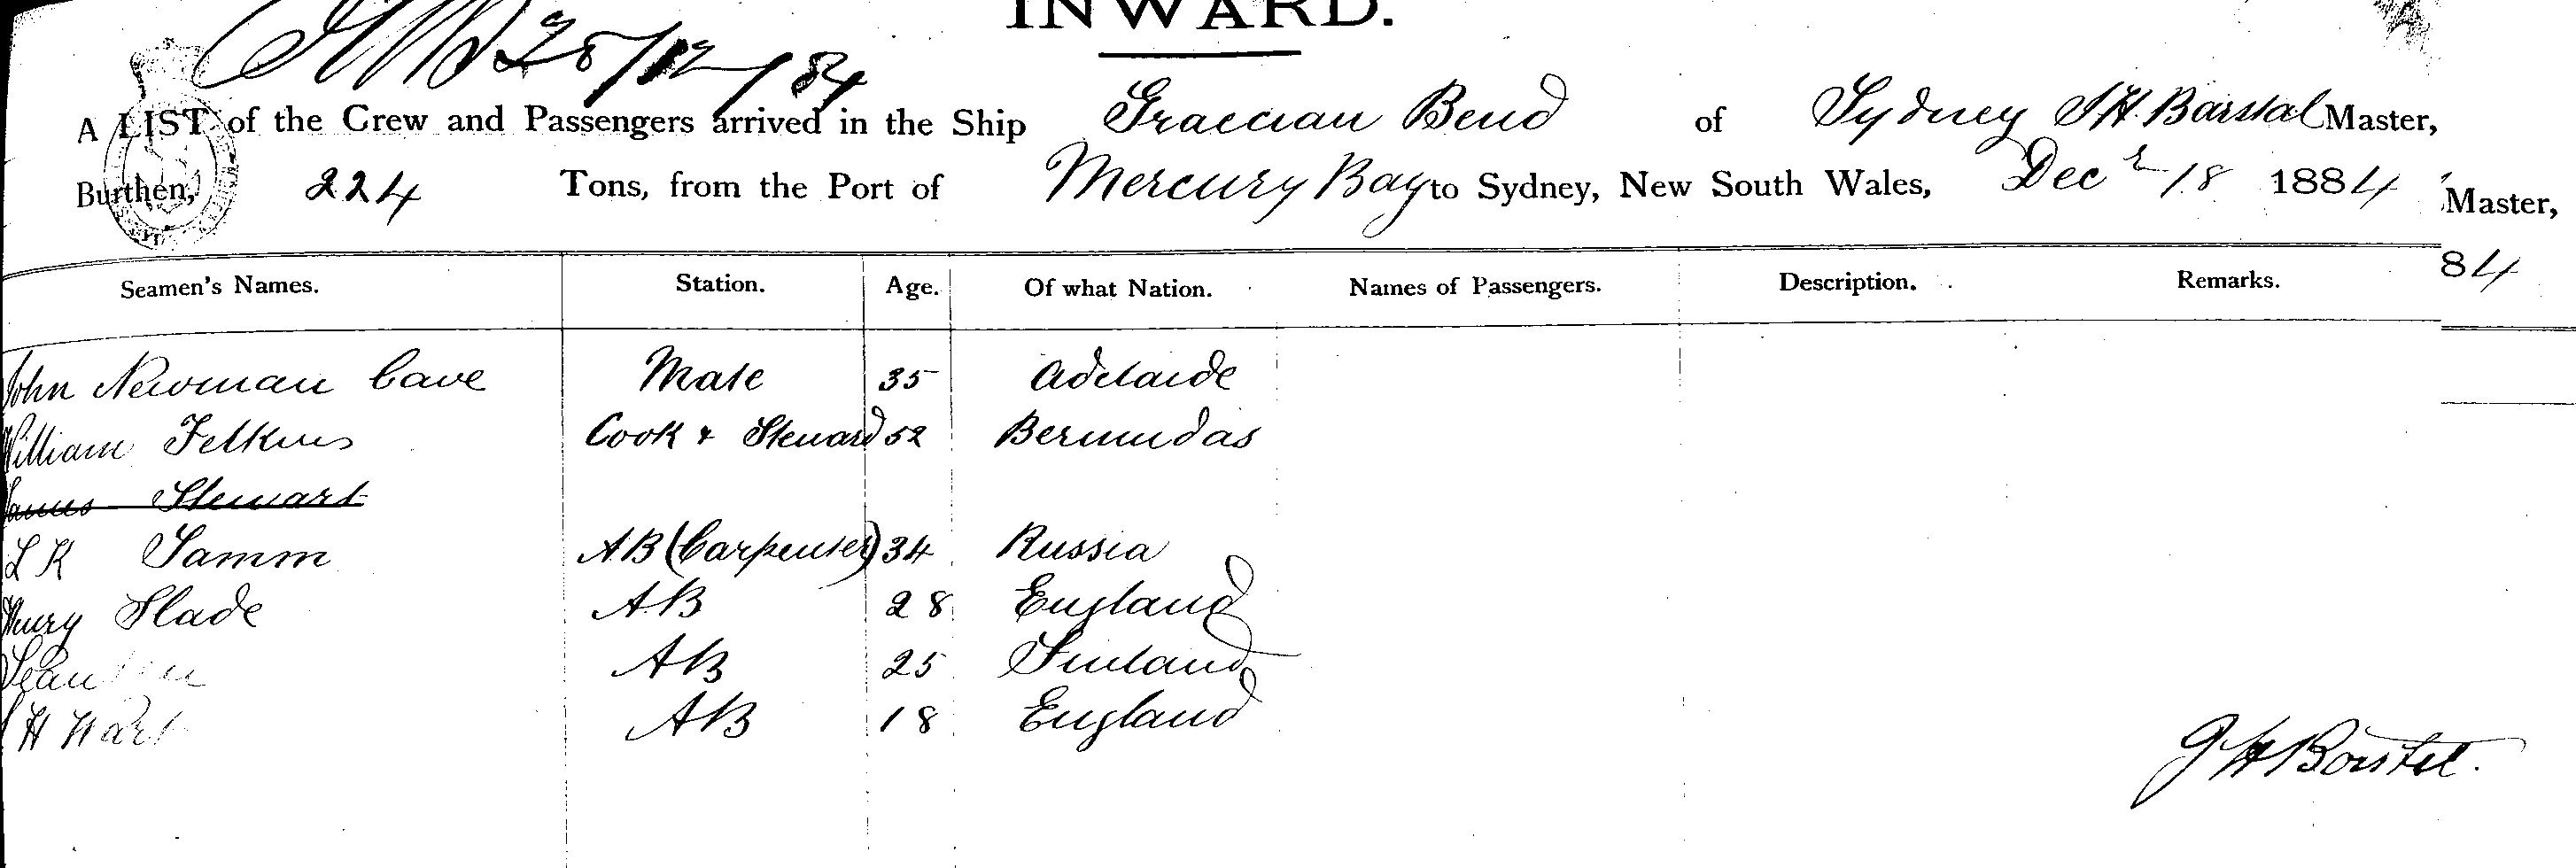 INWARD.
25/12/84
A LIST of the Crew and Passengers arrived in the Ship Graecian Bend of Sydney J H Barstal Master,
Burthen, 224 Tons, from the Port of Mercury Bay to Sydney, New South Wales, Decr 18 1884
Master,
84
Seamen's Names. Station. Age. Of what Nation. Names of Passengers. Description. Remarks.
John Newman Cave Mate 35 Adelaide
William Felkins Cook & Steward 52 Bermudas
James Steward
L K Samm AB (Carpenter) 34 Russia
Henry Slade AB 28 England
AB 25 Finland
H Hart AB 18 England
J H Borstel.